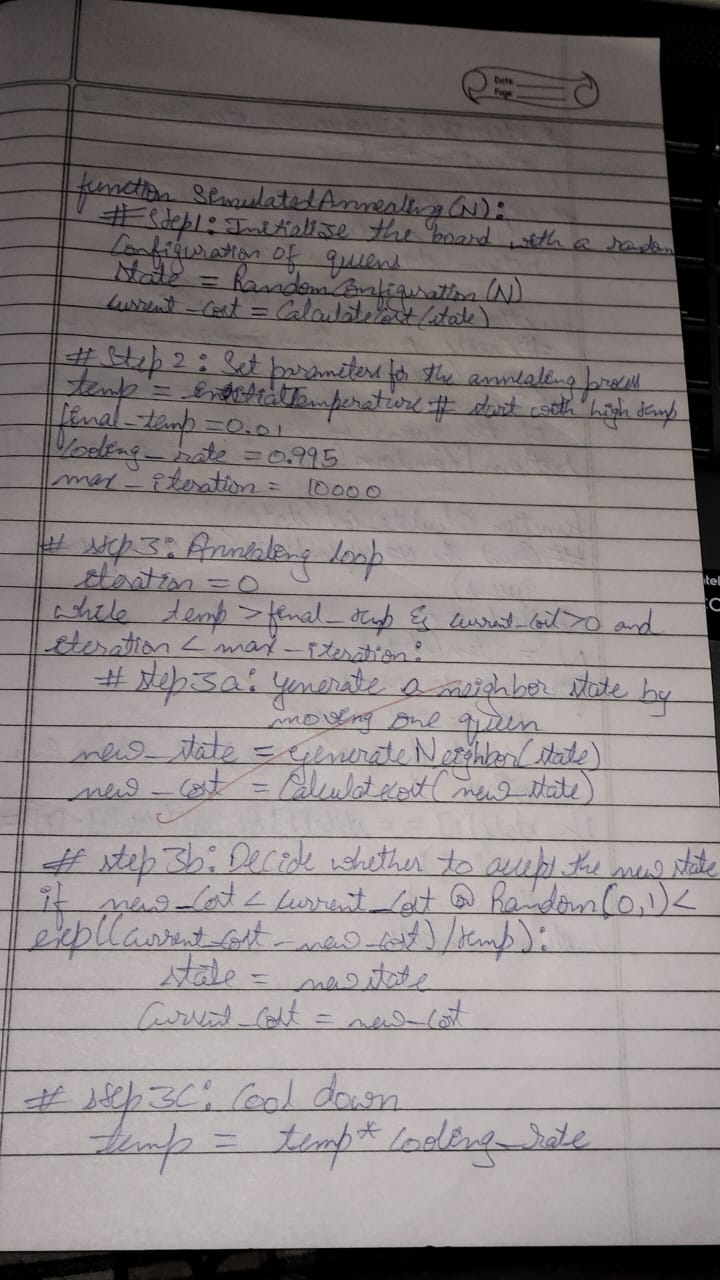 Date
Page
function SimulatedAnnealing(N):
# Step1: Initialize the board with a random
Configuration of queens
state = RandomConfiguration(N)
current-cost = CalculateCost(state)
# Step 2: Set parameters for the annealing process
temp = initialTemperature # start with high temp
final-temp = 0.01
cooling-rate = 0.995
max-iteration = 10000
# step 3: Annealing loop
iteration = 0
while temp > final-temp & current-cost > 0 and
iteration < max-iteration:
# step 3a: generate a neighbor state by
moving one queen
new_state = generateNeighbor(state)
new-cost = Calculatecost(new_state)
# step 3b: Decide whether to accept the new state
if new_cost < current_cost or Random(0,1) <
exp((current_cost - new_cost)/temp):
state = newstate
Current_cost = new-cost
# step 3C: Cool down
temp = temp * cooling_rate